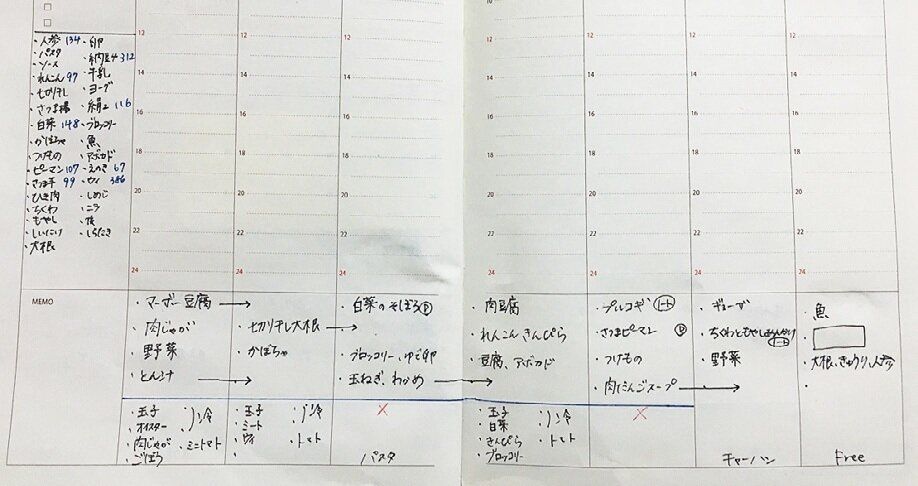 ・人参 134
・パスタ
・ソース
・れんこん 97
・切り干し
・さつま揚
・白菜 148
・かぼちゃ
・つけもの
・ピーマン 107
・さつま芋 99
・ひき肉
・ちくわ
・もやし
・しいたけ
・大根
・卵
・納豆 312
・牛乳
・ヨーグ
・絹 116
・ブロッコリー
・魚
・アボカド
・えのき 67
386
・しめじ
・ニラ
・しらたき
12
14
16
18
20
22
24
12
14
16
18
20
22
24
12
14
16
18
20
22
24
12
14
16
18
20
22
24
12
14
16
18
20
22
24
12
14
16
18
20
22
24
12
14
16
18
20
22
24
MEMO
・マーボー豆腐 →
・肉じゃが
・野菜
・とん汁 →
・切り干し大根 →
・かぼちゃ
・白菜のそぼろ
・ブロッコリー、ゆで卵
・玉ねぎ、わかめ →
・肉豆腐
・れんこんきんぴら
・豆腐、アボカド
・プルコギ
・さつまピーマン
・つけもの
・肉だんごスープ →
・ギョーザ
・ちくわともやし
・野菜
・魚
・大根、きゅうり、人参
・玉子
・オイスター
・肉じゃが
・ごぼう
・ミニトマト
・玉子
・ミート
・トマト
×
パスタ
・玉子
・白菜
・きんぴら
・ブロッコリー
・トマト
×
チャーハン
Free